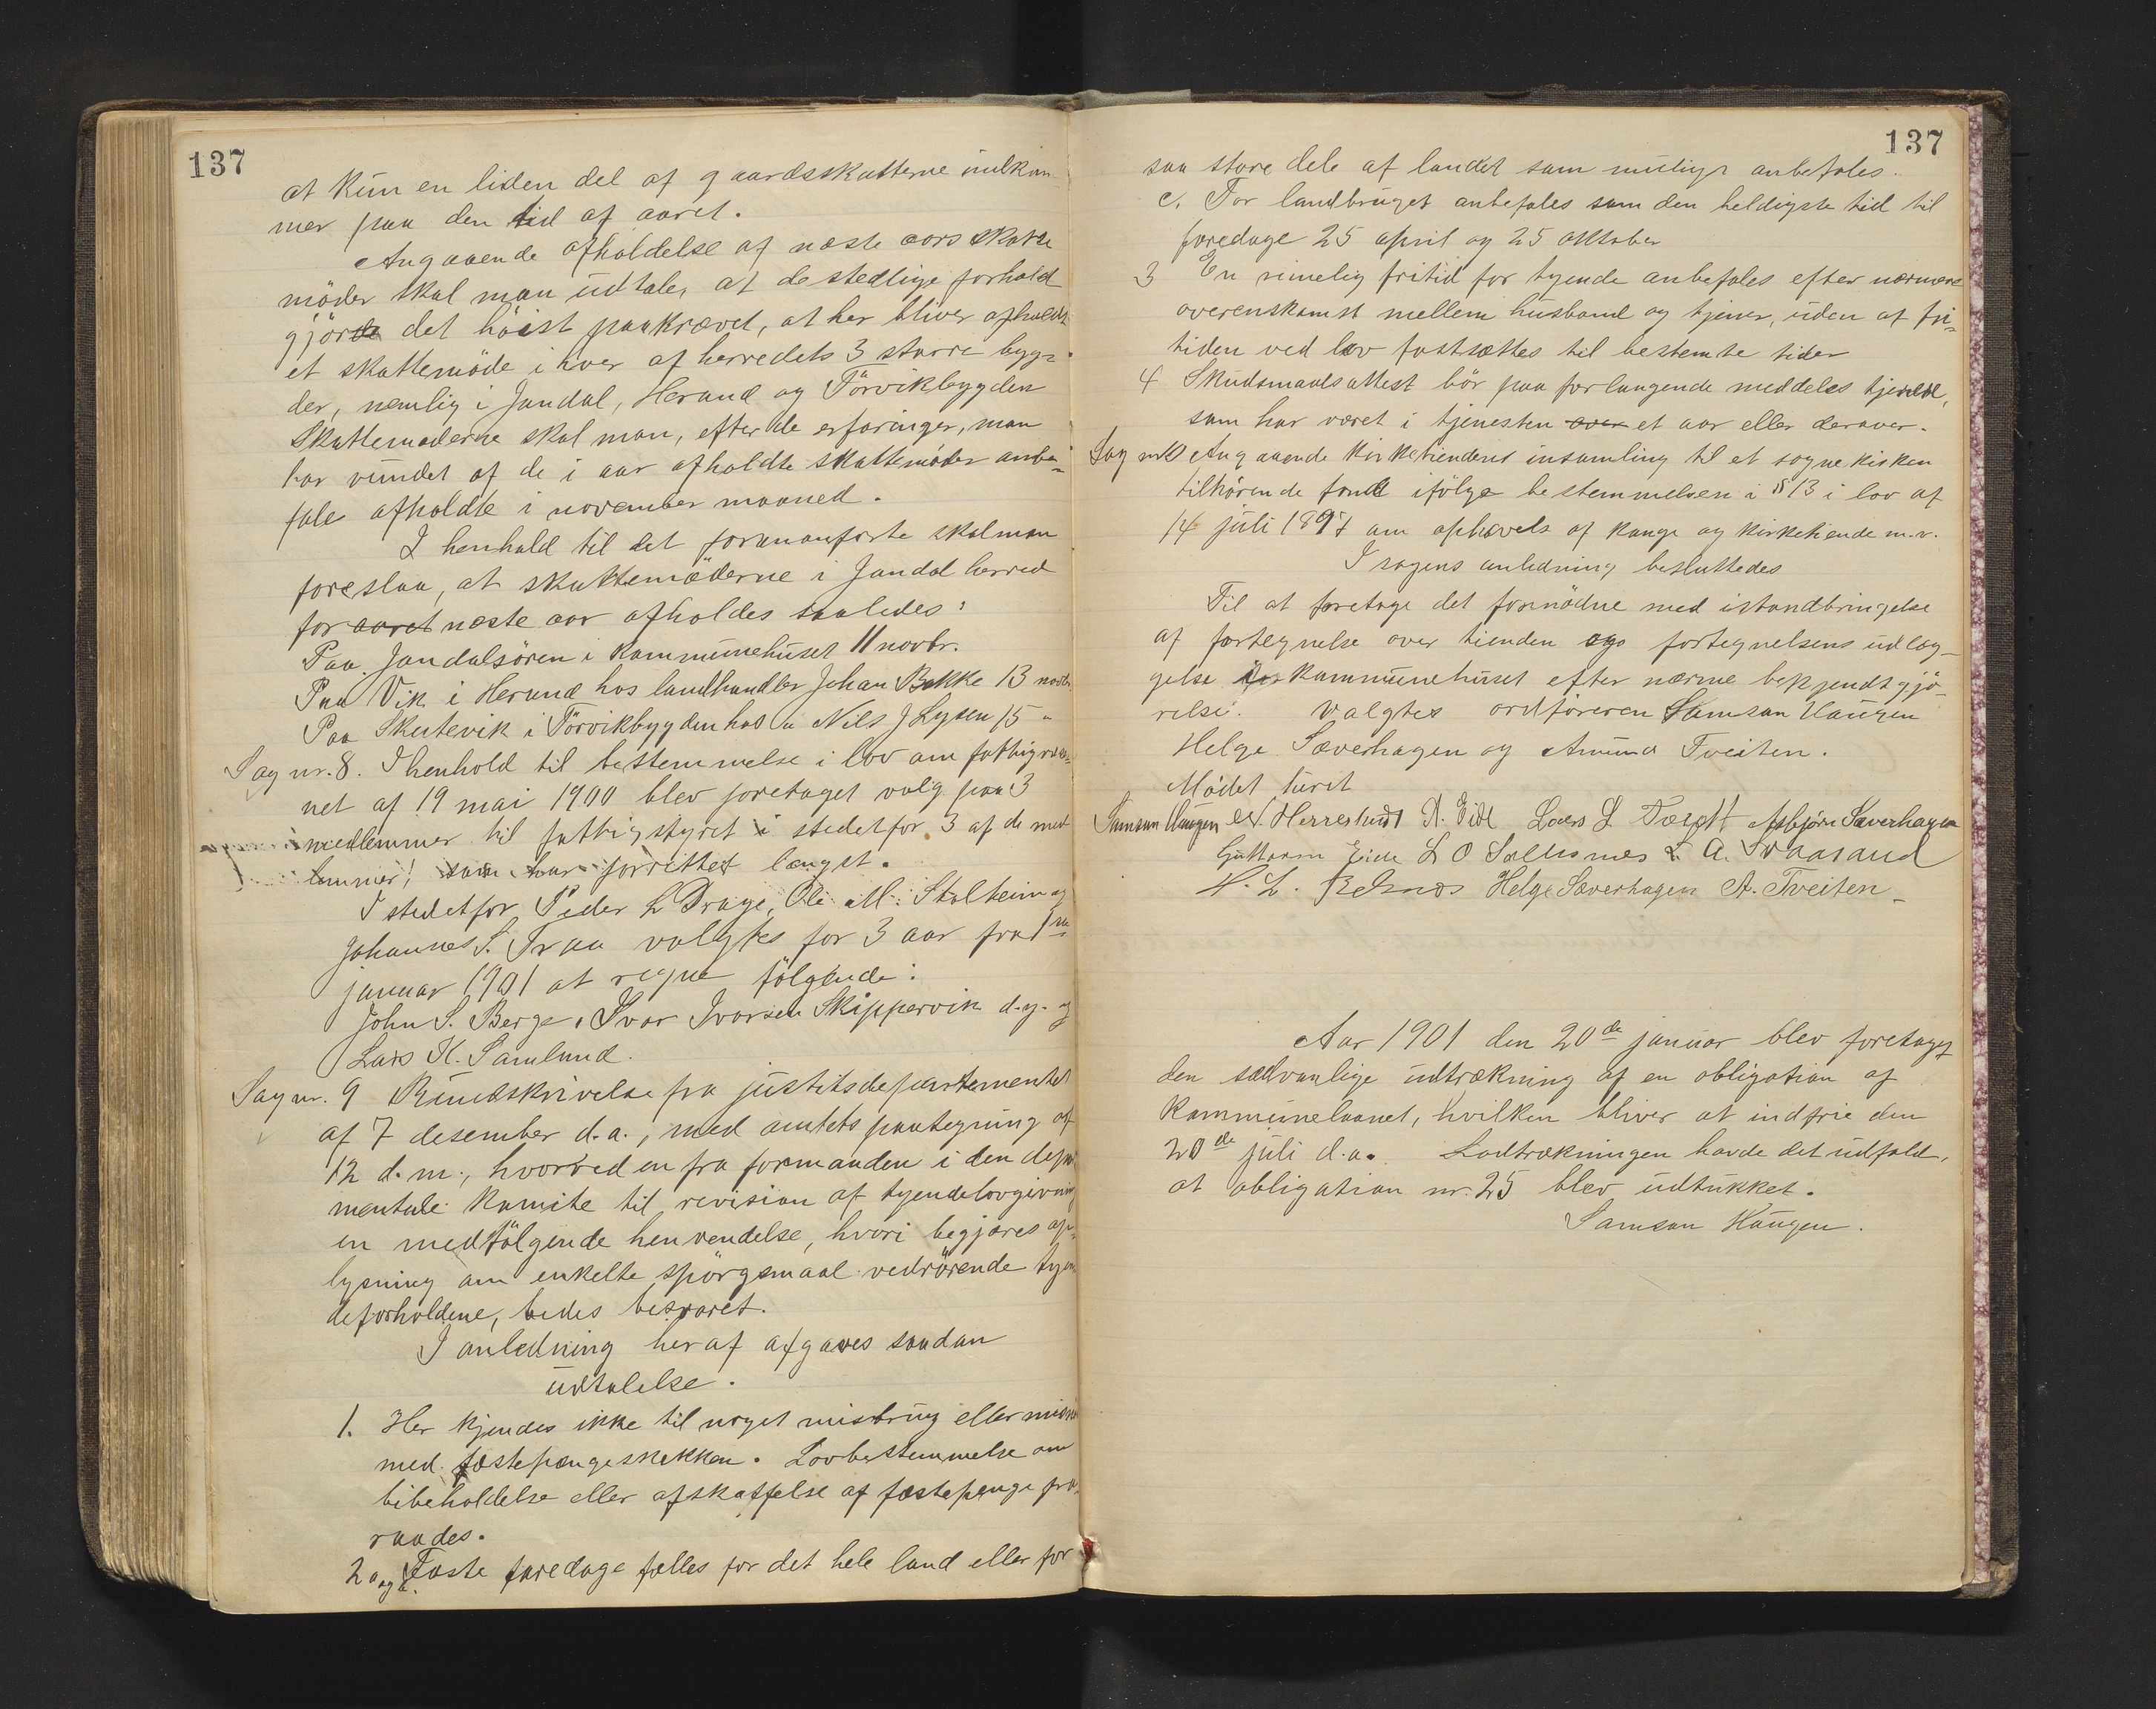 137
at kun en liden del af gaardsskatterne indkom-
mer paa den tid af aaret.
Angaaende afholdelse af næste aars skatte
möder skal man udtale, at de stedlige forhold
gjör det höist paakrævet, at her bliver afholdt
et skattemöde i hver af herredets 3 större byg-
der, nemlig i Jondal, Herand og Törvikbygden
Skattemøderne skal man, efter de erfaringer, man
har vundet af de i aar afholdte skattemöder anbe-
fale afholdte i november maaned.
I henhold til det forananförte skal man
foreslaa, at skattemöderne i Jondal herred
for aaret næste aar afholdes saaledes:
Paa Jondalsören i kommunehuset 11 novbr.
Paa Vik i Herand hos landhandler Johan Bakke 13 novbr.
Paa Skutevik i Törvikbygden hos " Nils J Lysen 15 "
Sag nr. 8. I henhold til bestemmelse i lov om fattigvæs-
net af 19 mai 1900 blev foretaget valg paa 3
medlemmer til fattigstyret i stedetfor 3 af de med
lemmer, som har forrettet længst.
I stedetfor Peder L Drage, Ole M. Stalheim og
Johannes S. Traa valgtes for 3 aar fra 1ste
januar 1901 at regne fölgende:
John S. Berge, Ivar Ivarsen Skippervik d.y. og
Lars K. Samland.
Sag nr. 9 Rundskrivelse fra justitsdepartementet
af 7 desember d.a., med amtets paategning af
12 d.m., hvorved en fra formanden i den depar
mentale komite til revision af tyendelovgivning
en medfölgende henvendelse, hvori begjæres op-
lysning om enkelte spörgsmaal vedrörende tyen-
deforholdene, bedes besvaret.
I anledning heraf afgaves saadan
udtalelse.
1. Her kjendes ikke til noget misbrug eller
med fæstepengeskikken. Lovbestemmelse om
bibeholdelse eller afskaffelse af fæstepenge fra-
raades.
2 a og b. Faste faredage fælles for det hele land eller for
137
saa store dele af landet som muligt anbefales.
c. For landbruget anbefales som den heldigste tid til
faredage 25 april og 25 oktober
3 En rimelig fritid for tyende anbefales efter nærmere
overenskomst mellem husbond og tjener, uden at fri-
tiden ved lov fastsættes til bestemte tider
4 Skudsmaalsattest bör paa forlangende meddeles tjenere,
som har været i tjenesten over et aar eller derover.
Sag nr 10 Angaaende kirketiendens insamling til et sognekirken
tilhörende fond ifölge bestemmelsen i § 13 i lov af
14 juli 1897 om ophævels af konge og kirketiende m.v.
I sagens anledning besluttedes
Til at foretage det fornödne med istandbringelse
af fortegnelse over tienden ogs fortegnelsens udlæg-
gelse i kommunehuset efter nærme bekjendtgjö-
relse. valgtes ordföreren Samson Haugen
Helge Sæverhagen og Amund Tveiten.
Mödet hævet
Samson Haugen A. Herreslund A. Eide Lars L Torpe Asbjörn Sæverhagen
Guttorm Eide L O Solesnes L. A. Svaasand
H. L. Reknes Helge Sæverhagen A. Tveiten
Aar 1901 den 20de januar blev foretaget
den sædvanlige udtrækning af en obligation af
kommunelaanet, hvilken bliver at indfrie den
20de juli d.a. Lodtrækningen havde det udfald,
at obligation nr. 25 blev udtrukket.
Samson Haugen.